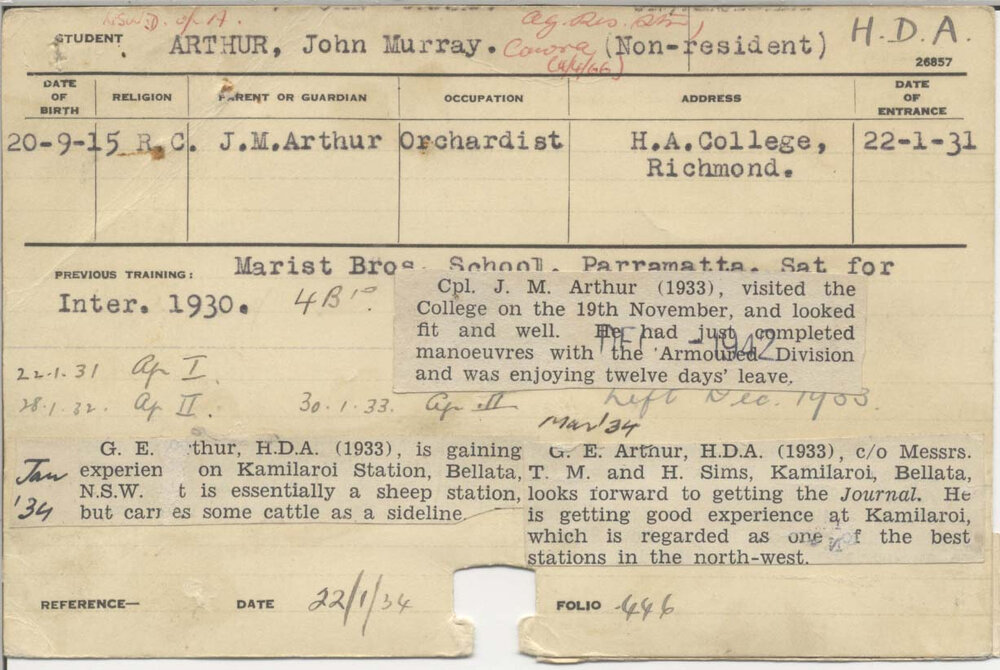 N.S.W. D. of A.
Ag. Res. Stn
STUDENT ARTHUR, John Murray. Cowra (Non-resident) H.D.A.
(4/4/66)
26857
DATE OF BIRTH RELIGION PARENT OR GUARDIAN OCCUPATION ADDRESS DATE OF ENTRANCE
20-9-15 R.C. J.M.Arthur Orchardist H.A.College, 22-1-31
Richmond.
PREVIOUS TRAINING: Marist Bros. School. Parramatta. Sat for
Inter. 1930. 4 B
Cpl. J. M. Arthur (1933), visited the
College on the 19th November, and looked
fit and well. He had just completed
manoeuvres with the Armoured Division
and was enjoying twelve days' leave.
DEC -1942
22.1.31 Ag I.
28.1.32. Ag II. 30.1.33. Ag III Left Dec. 1933.
Mar '34
Jan '34
G. E. rthur, H.D.A. (1933), is gaining
experien on Kamilaroi Station, Bellata,
N.S.W. t is essentially a sheep station,
but carr es some cattle as a sideline
G. E. Arthur, H.D.A. (1933), c/o Messrs.
T. M. and H. Sims, Kamilaroi, Bellata,
looks forward to getting the Journal. He
is getting good experience at Kamilaroi,
which is regarded as one of the best
stations in the north-west.
REFERENCE— DATE 22/1/34 FOLIO 446